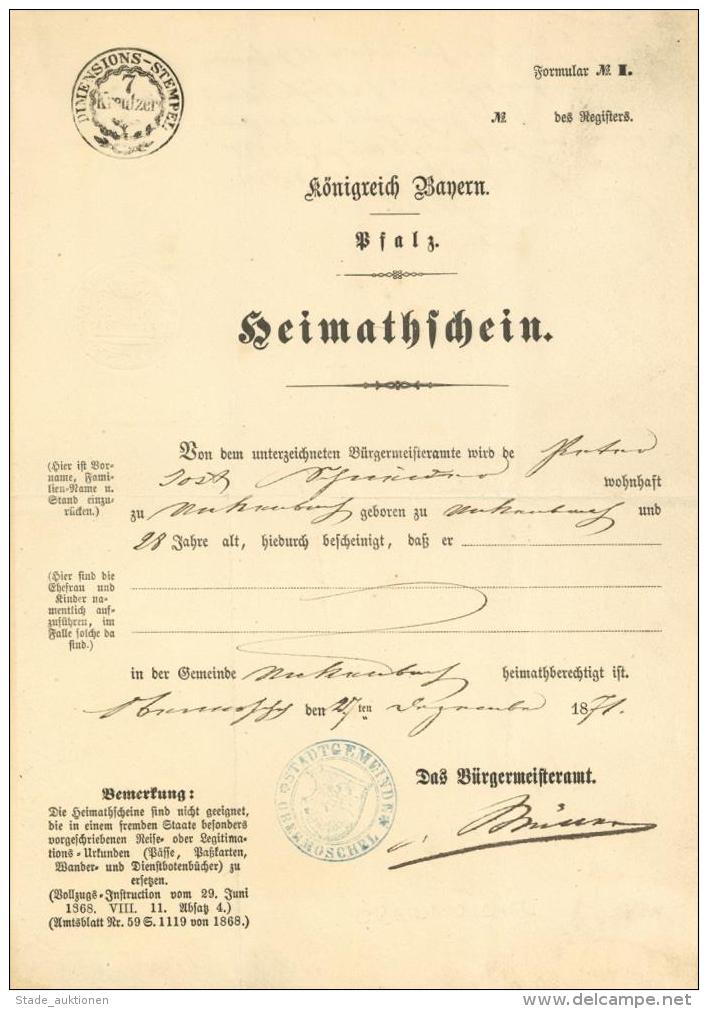 DIMENSIONS-STEMPEL
7
Kreutzer
Formular № I.
№ des Registers.
Königreich Bayern.
Pfalz.
Heimathschein.
(Hier ist Vor-
name, Fami-
lien-Name u.
Stand einzu-
rücken.)
Von dem unterzeichneten Bürgermeisteramte wird de Peter
Jost wohnhaft
zu geboren zu und
28 Jahre alt, hiedurch bescheinigt, daß er
(Hier sind die
Ehefrau und
Kinder na-
mentlich auf-
zuführen, im
Falle solche da
sind.)
in der Gemeinde heimathberechtigt ist.
Obermoschel den 27ten Dezember 1871.
STADTGEMEINDE OBERMOSCHEL
Das Bürgermeisteramt.
Bemerkung:
Die Heimathscheine sind nicht geeignet,
die in einem fremden Staate besonders
vorgeschriebenen Reise- oder Legitima-
tions-Urkunden (Pässe, Paßkarten,
Wander- und Dienstbotenbücher) zu
ersetzen.
(Vollzugs-Instruction vom 29. Juni
1868. VIII. 11. Absatz 4.)
(Amtsblatt Nr. 59 S. 1119 von 1868.)
Stade_auktionen
delcampe.net